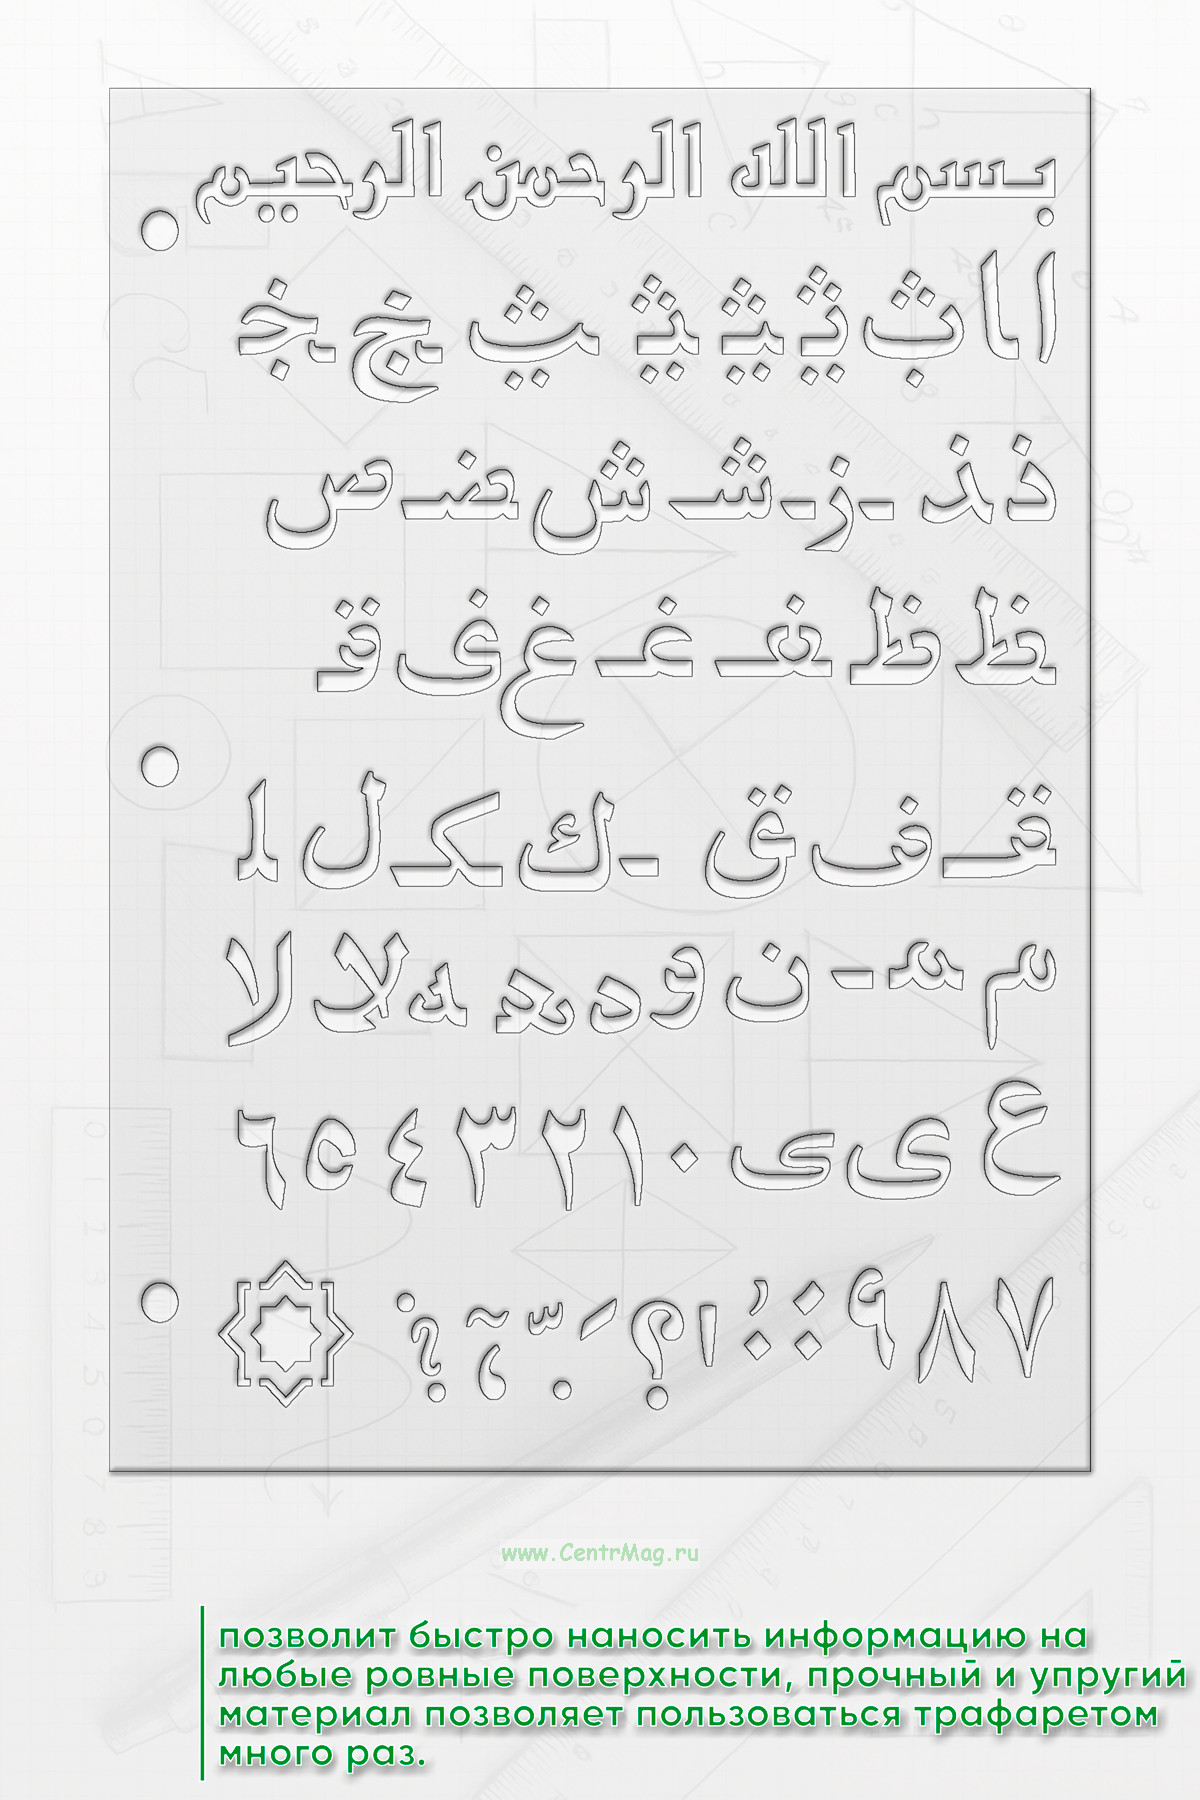 بسم الله الرحمن الرحيم
ا ا
ذ ذ ـ ز ـ شـ ش ضـ ص
ظ ظ فـ غـ غ ف قـ
قـ ف ق ـ ك كـ ل ا
م مـ ـ ن و د هـ ه لا لا
ع ى ٠ ١ ٢ ٣ ٤ ٥ ٦
٧ ٨ ٩ : ؟
www.CentrMag.ru
позволит быстро наносить информацию на
любые ровные поверхности, прочный и упругий
материал позволяет пользоваться трафаретом
много раз.